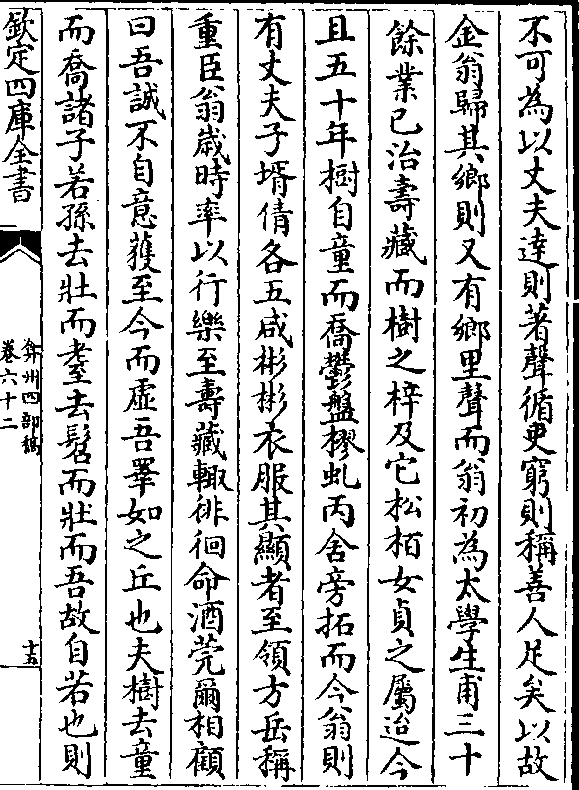 不可為以丈夫達則著聲循吏窮則稱善人足矣以故
金翁歸其鄉則又有鄉里聲而翁初為太學生甫三十
餘業已治壽藏而樹之梓及它松栢女貞之屬迨今
且五十年樹自童而喬鬱盤樛虬丙舍旁拓而今翁則
有丈夫子壻倩各五咸彬彬衣服其顯者至領方岳稱
重臣翁歲時率以行樂至壽藏輙徘徊命酒莞爾相顧
曰吾誠不自意獲至今而虛吾睪如之丘也夫樹去童
而喬諸子若孫去壯而耋去髫而壯而吾故自若也則
欽定四庫全書
弇州四部稿
卷六十二
十五